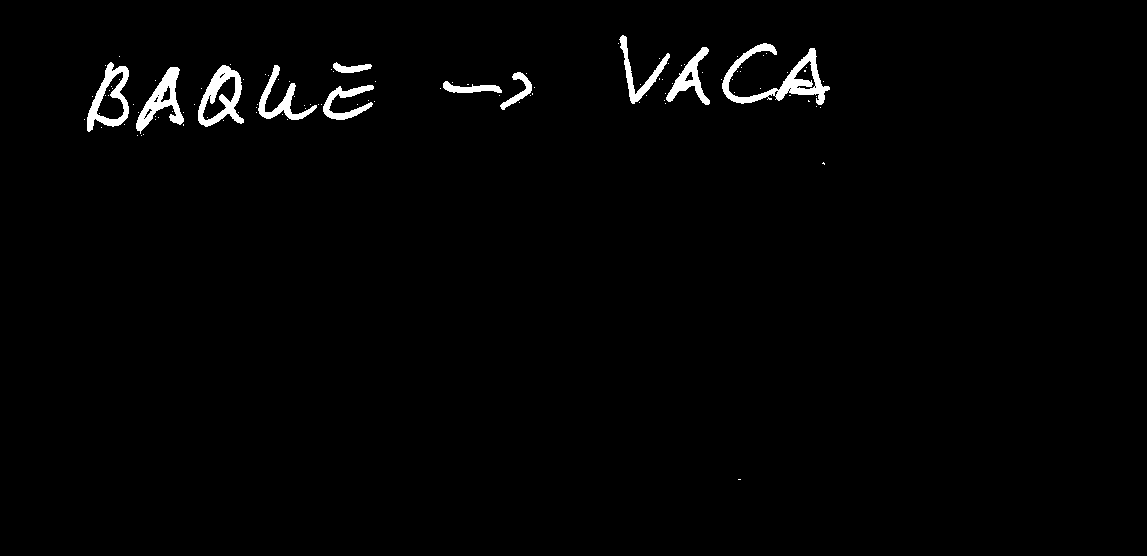 BAQUE → VACA